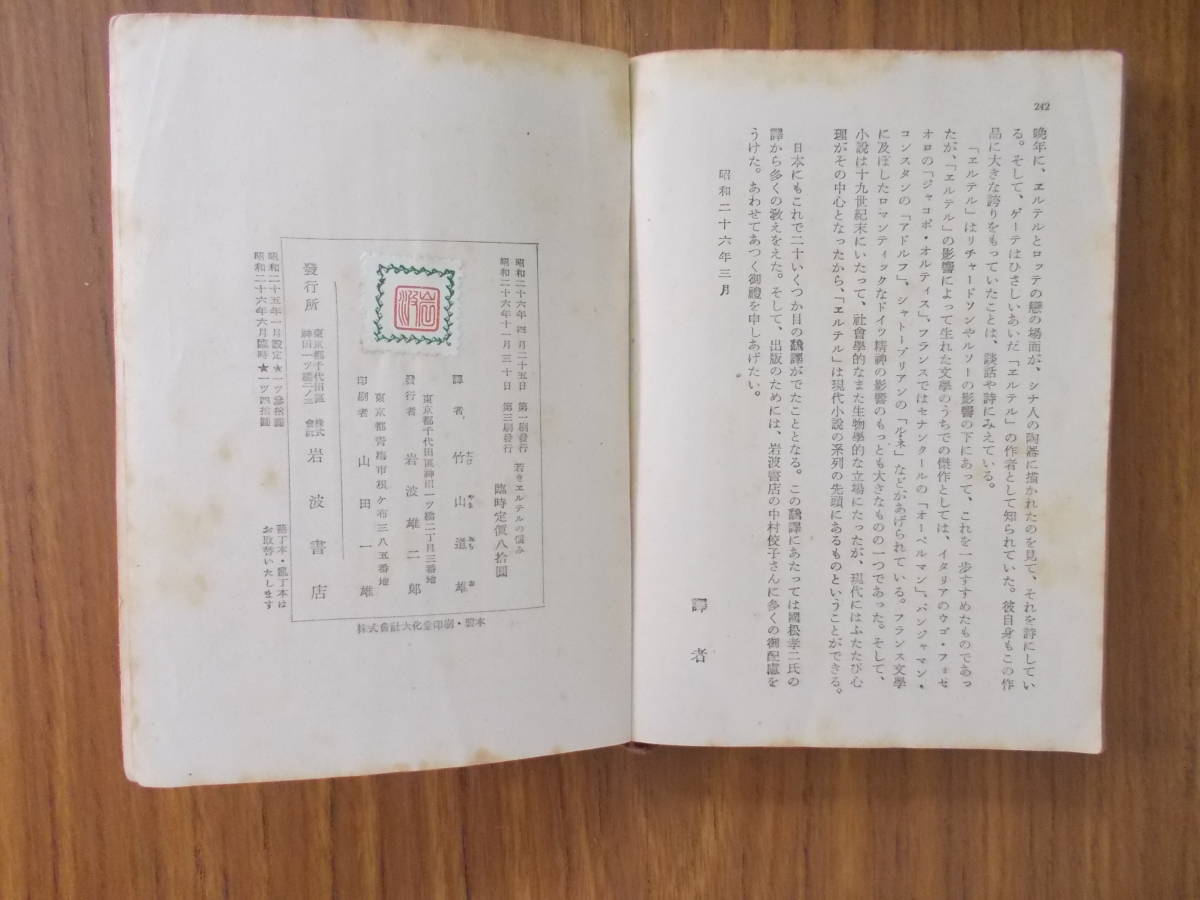 242
晩年に、ヱルテルとロッテの戀の場面が、シナ人の陶器に描かれたのを見て、それを詩にしてい
る。そして、ゲーテはひさしいあいだ「ヱルテル」の作者として知られていた。彼自身もこの作
品に大きな誇りをもっていたことは、談話や詩にみえている。
「ヱルテル」はリチャードソンやルソーの影響の下にあって、これを一歩すすめたものであっ
たが、「ヱルテル」の影響によって生れた文學のうちでの傑作としては、イタリアのウゴ・フォセ
オロの「ジャコポ・オルティス」、フランスではセナンクールの「オーベルマン」、バンジャマン・
コンスタンの「アドルフ」、シャトーブリアンの「ルネ」などがあげられている。フランス文學
に及ぼしたロマンティックなドイツ精神の影響のもっとも大きなものの一つであった。そして、
小説は十九世紀末にいたって、社會學的なまた生物學的な立場にたったが、現代にはふたたび心
理がその中心となったから、「ヱルテル」は現代小説の系列の先頭にあるものということができる。
日本にもこれで二十いくつか目の飜譯がでたこととなる。この飜譯にあたっては國松孝二氏の
譯から多くの敎えをえた。そして、出版のためには、岩波書店の中村佼子さんに多くの御配慮を
うけた。あわせてあつく御禮を申しあげたい。
昭和二十六年三月
譯者
昭和二十六年四月二十五日 第一刷發行
昭和二十六年十一月三十日 第三刷發行
若きヱルテルの悩み
臨時定價八拾圓
譯者 竹山道雄
たけ やま みち お
東京都千代田區神田一ツ橋二丁目三番地
發行者 岩波雄二郎
東京都青梅市根ヶ布三八五番地
印刷者 山田一雄
岩波
發行所
東京都千代田區
神田一ツ橋二ノ三
株式
會社
岩波書店
株式會社大化堂印刷・製本
昭和二十五年一月設定★一ツ參拾圓
昭和二十六年六月臨時★一ツ四拾圓
落丁本・亂丁本は
お取替いたします